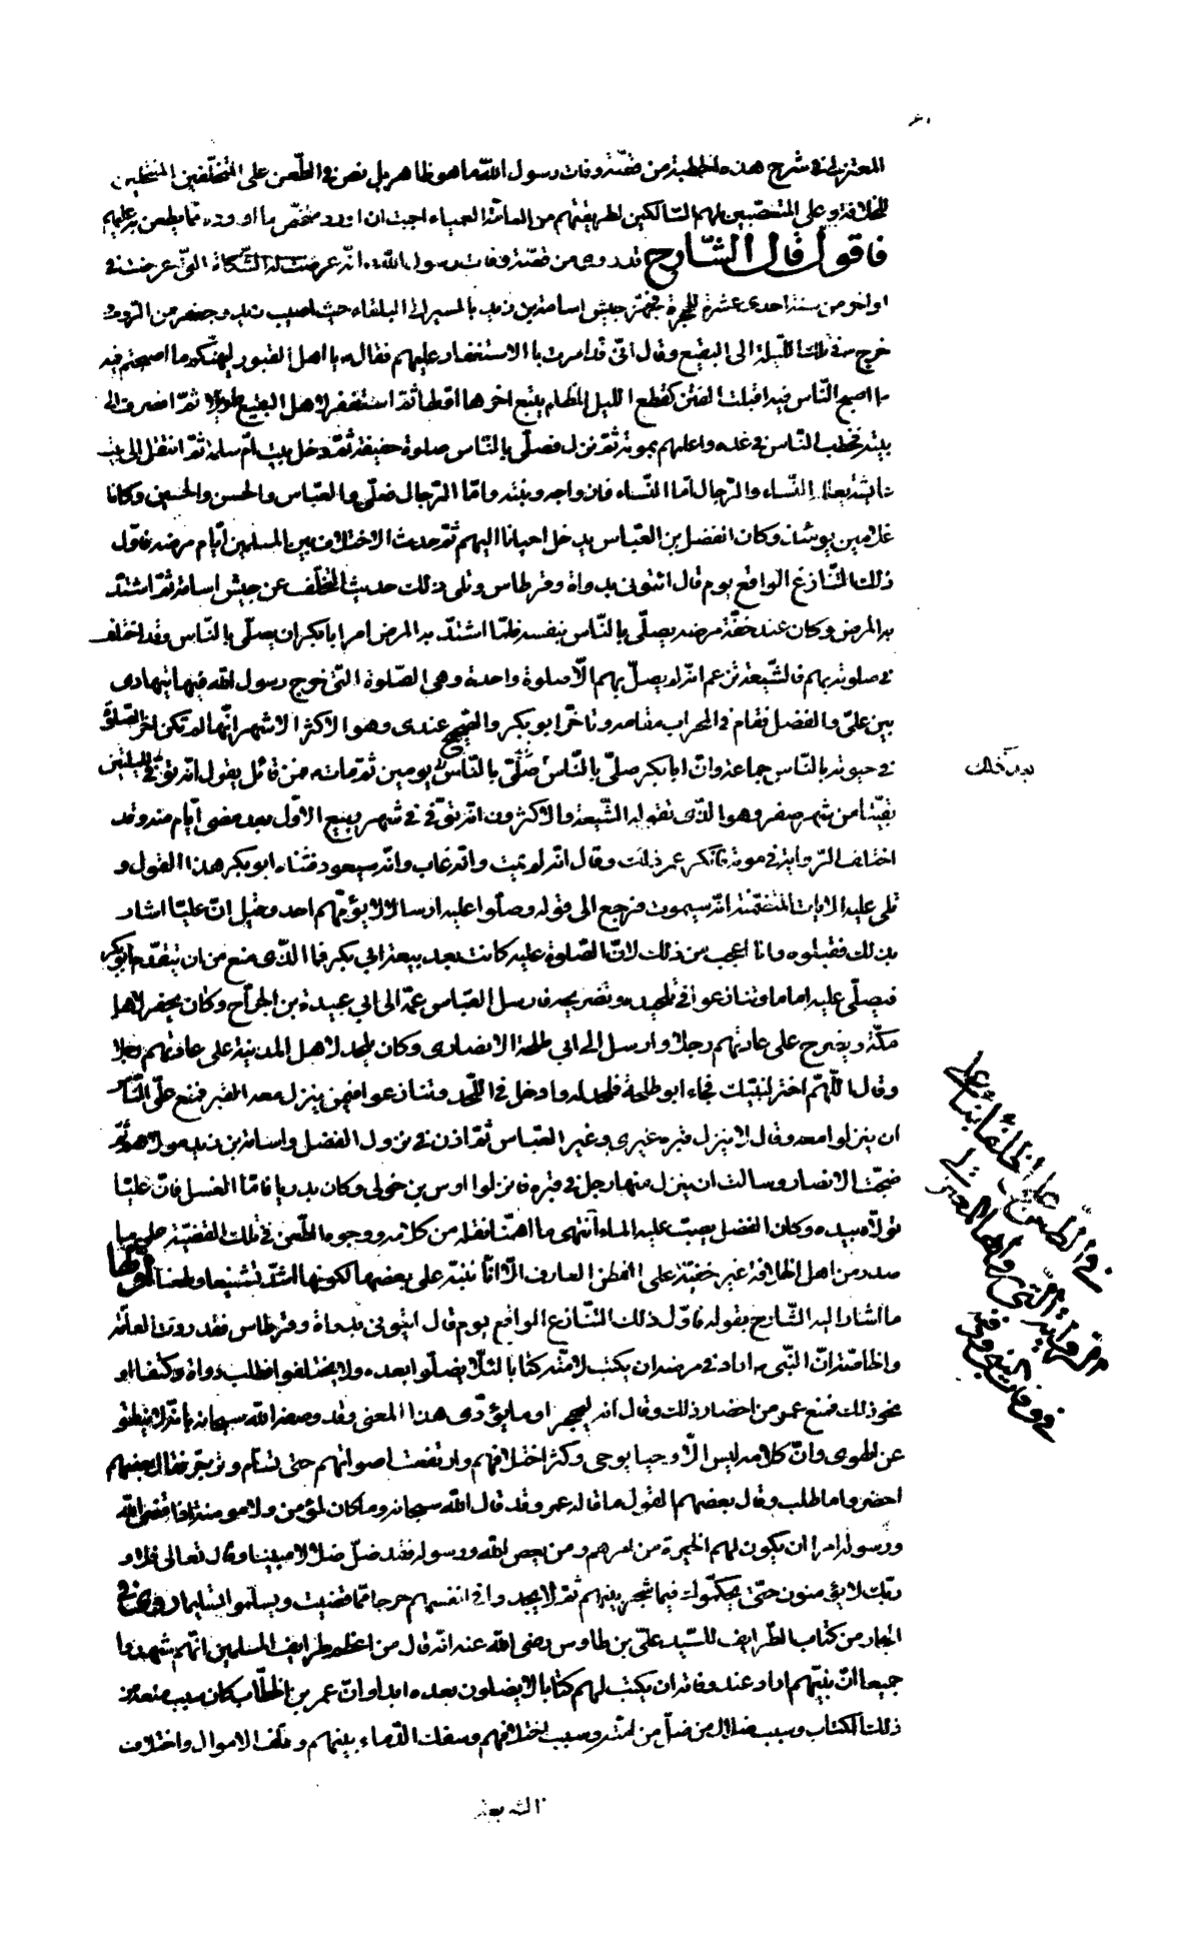 المعتزلي في شرح هذه الخطبة من قصّة وفات رسول اللّه ما هو ظاهر بل نص في الطّعن على المتخلّفين المنتحلين
للخلافة وعلى المتعصّبين لهم السّالكين لطريقتهم من العامّة العمياء احببت ان اورد ملخّص ما اورده ممّا يطعن به عليهم
فاقول قال الشّارح قد روى من قصّة وفات رسول اللّه انّه عرضت له الشّكاة الّتي عرضت في
اواخر من سنة احدى عشرة للهجرة فجهّز جيش اسامة بن زيد بالمسير الى البلقاء حيث اصيب زيد وجعفر من الرّوم و
خرج في تلك اللّيلة الى البقيع وقال انّى قد امرت بالاستغفار عليهم فقال يا اهل القبور ليهنكم ما اصبحتم فيه
ما اصبح النّاس فيه اقبلت الفتن كقطع الليل المظلم يتبع اخرها اوّلها ثمّ استغفر لاهل البقيع طويلا ثمّ انصرف الى
بيته فخطب النّاس في غده واعلمهم بموته ثمّ نزل فصلّى بالنّاس صلوة خفيفة ثمّ دخل بيت امّ سلمة ثمّ انتقل الى بيت
عايشة يعلله النّساء والرّجال امّا النّساء فازواجه وبنته وامّا الرّجال فعلّى والعبّاس والحسن والحسين وكانا
غلامين يومئذ وكان الفضل بن العبّاس يدخل احيانا اليهم ثمّ حدث الاختلاف بين المسلمين ايّام مرضه فاوّل
ذلك التّنازع الواقع يوم قال ائتوني بدواة وقرطاس وتلى ذلك حديث التخلّف عن جيش اسامة ثمّ اشتدّ
به المرض وكان عند خفّة مرضه يصلّى بالنّاس بنفسه فلمّا اشتدّ به المرض امر ابا بكر ان يصلّى بالنّاس وقد اختلف
في صلوته بهم فالشّيعة تزعم انّه لم يصلّ بهم الّا صلوة واحدة وهي الصّلوة الّتي خرج رسول اللّه فيها يتهادى
بين علىّ والفضل فقام في المحراب مقامه وتاخّر ابو بكر والصّحيح عندى وهو الاكثر الاشهر انّها لم تكن اخر الصّلوة
في حيوته بالنّاس جماعة وانّ ابا بكر صلّى بالنّاس بعد ذلك يومين ثمّ مات فمن قائل يقول انّه توفّي لليلتين
بقيتا من شهر صفر وهو الّذى تقوله الشّيعة والاكثرون انّه توفّي في شهر ربيع الاوّل بعد مضى ايّام منه وقد
اختلف الرّواية في موته فانكر عمر ذلك وقال انّه لم يمت وانّه غاب وانّه سيعود فثناه ابو بكر هذا القول و
تلى عليه الايات المتضمّنة انّه سيموت فرجع الى قوله وصلّوا عليه ارسالا لا يؤمّهم احد وقيل انّ عليّا اشار
بذلك فقبلوه وانا اعجب من ذلك لانّ الصّلوة عليه كانت بعد بيعة ابي بكر فما الّذى منع من ان يتقدّم ابو بكر
فيصلّى عليه اماما وتنازعوا في تلحيده وتضريحه فارسل العبّاس عمّه الى ابي عبيدة بن الجرّاح وكان يحفر لاهل
مكّة ويضرح على عادتهم رجلا وارسل الى ابي طلحة الانصارى وكان يلحد لاهل المدينة على عادتهم رجلا
وقال اللّهمّ اختر لنبيّك فجاء ابو طلحة فلحد له وادخل في اللّحد وتنازعوا فيمن ينزل معه القبر فمنع علىّ النّاس
ان ينزلوا معه وقال لا ينزل قبره غيرى وغير العبّاس ثمّ اذن في نزول الفضل واسامة بن زيد مولاهم ثمّ
ضجّت الانصار وسالت ان ينزل منها رجل في قبره فانزلوا اوس بن خولى وكان بدريا فامّا الغسل فانّ عليّا
تولّاه بيده وكان الفضل يصبّ عليه الماء انتهى ما اهمّنا نقله من كلامه ووجوه الطّعن في تلك القضيّة على ما
صدر من اهل الخلافة غير خفيّة على الفطن العارف الّا انّا ننبّه على بعضها لكونها اشدّ تشنيعا وطعنا اوّلها
ما اشار اليه الشّارح بقوله فاوّل ذلك التّنازع الواقع يوم قال ايتوني بدواة وقرطاس فقد روت العامّة
والخاصّة انّ النّبى اراد في مرضه ان يكتب لامّته كتابا لئلّا يضلّوا بعده ولا يختلفوا فطلب دواة وكتفا او
نحو ذلك فمنع عمر من احضار ذلك وقال انّه ليهجر او ما يؤدّى هذا المعنى وقد وصفه اللّه سبحانه بانّه لا ينطق
عن الهوى وانّ كلامه ليس الّا وحيا يوحى وكثر اختلافهم وارتفعت اصواتهم حتى تسأم وتزجّر فقال بعضهم
احضروا ما طلب وقال بعضهم القول ما قاله عمر وقد قال اللّه سبحانه وما كان لمؤمن ولا مومنة اذا قضى اللّه
ورسوله امرا ان يكون لهم الخيرة من امرهم ومن يعص اللّه ورسوله فقد ضلّ ضلالا مبينا وقال تعالى فلا و
ربّك لا يؤمنون حتّى يحكّموك فيما شجر بينهم ثمّ لا يجدوا في انفسهم حرجا ممّا قضيت ويسلّموا تسليما روى في
البحار من كتاب الطّرايف للسّيد علىّ بن طاوس رضى اللّه عنه انّه قال من اعظم طرايف المسلمين انّهم شهدوا
جميعا انّ نبيّهم اراد عند وفاته ان يكتب لهم كتابا لا يضلون بعده ابدا وانّ عمر بن الخطّاب كان سبب منعه من
ذلك الكتاب وسبب ضلال من ضلّ من امّته وسبب اختلافهم وسفك الدّماء بينهم وتلف الاموال واختلاف
بعد ذلك
في الطعن على الخلفاء بناء على
ما رواه الشارح المعتزلي
في وفات النبي
الشريعة